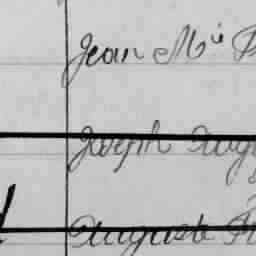 Jean Mie
Joseph Aug
Auguste